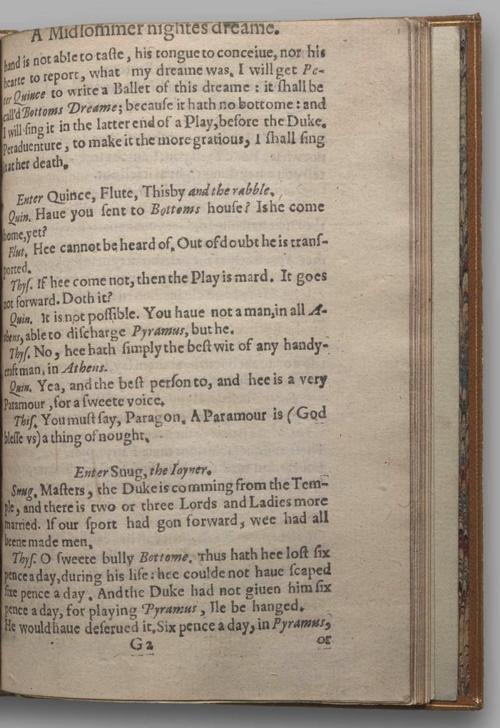 A Midsommer nightes dreame.
hand is not able to taste, his tongue to conceiue, nor his
hearte to report, what my dreame was. I will get Pe-
ter Quince to write a Ballet of this dreame: it shall be
call'd Bottoms Dreame; because it hath no bottome: and
I will sing it in the latter end of a Play, before the Duke.
Peraduenture, to make it the more gratious, I shall sing
it at her death.
Enter Quince, Flute, Thisby and the rabble.
Quin. Haue you sent to Bottoms house? Is he come
home, yet?
Flut. Hee cannot be heard of. Out of doubt he is trans-
ported.
Thys. If hee come not, then the Play is mard. It goes
not forward. Doth it?
Quin. It is not possible. You haue not a man, in all A-
thens, able to discharge Pyramus, but he.
Thys. No, hee hath simply the best wit of any handy-
craft man, in Athens.
Quin. Yea, and the best person to, and hee is a very
Paramour, for a sweete voice.
This. You must say, Paragon. A Paramour is (God
blesse vs) a thing of nought.
Enter Snug, the Ioyner.
Snug. Masters, the Duke is comming from the Tem-
ple, and there is two or three Lords and Ladies more
married. If our sport had gon forward, wee had all
beene made men.
Thys. O sweete bully Bottome. Thus hath hee lost six
pence a day, during his life: hee coulde not haue scaped
sixe pence a day. And the Duke had not giuen him six
pence a day, for playing Pyramus, Ile be hanged.
He would haue deserued it. Six pence a day, in Pyramus,
G2 or